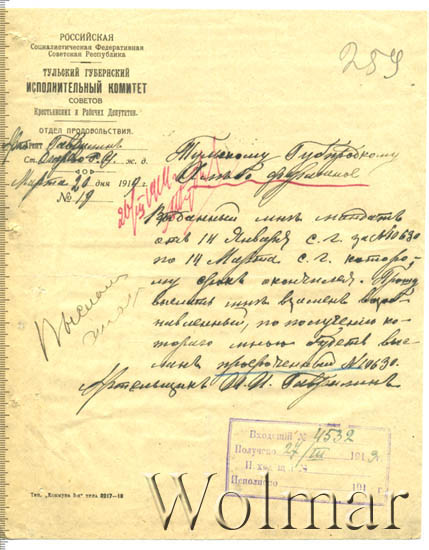 РОССИЙСКАЯ
Социалистическая Федеративная
Советская Республика
ТУЛЬСКИЙ ГУБЕРНСКИЙ
ИСПОЛНИТЕЛЬНЫЙ КОМИТЕТ
СОВЕТОВ
Крестьянских и Рабочих Депутатов.
ОТДЕЛ ПРОДОВОЛЬСТВИЯ.
259
Ст. ж. д.
Марта 20 дня 1919 г.
№ 19
Тульскому
Выданный мне мандатъ
отъ 14 Января с. г. за № 10630
по 14 Марта с. г. которо-
му срокъ окончился. Прошу
выслать мнѣ взаменъ возоб-
навленный, по полученію ко-
тораго мною будетъ выс-
ланъ просроченный № 10630.
Артельщикъ
Выслать
Входящій № 4532
Получено 27/III 1919 г.
Исполнено 191 г.
Тип. „Коммуна 3-я" тел. 2217-18
Wolmar